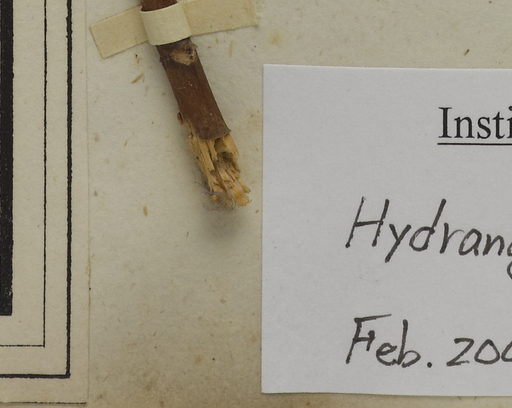 Insti
Hydrang
Feb. 200